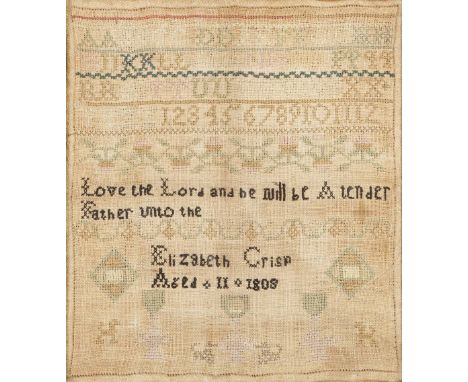 AA DD HH
II KK LL PP QQ
RR UU XX
1 2 3 4 5 6 7 8 9 10 11 12
Love the Lord and he will be A tender
Father unto the
Elizabeth Crisp
Aged 11 1808